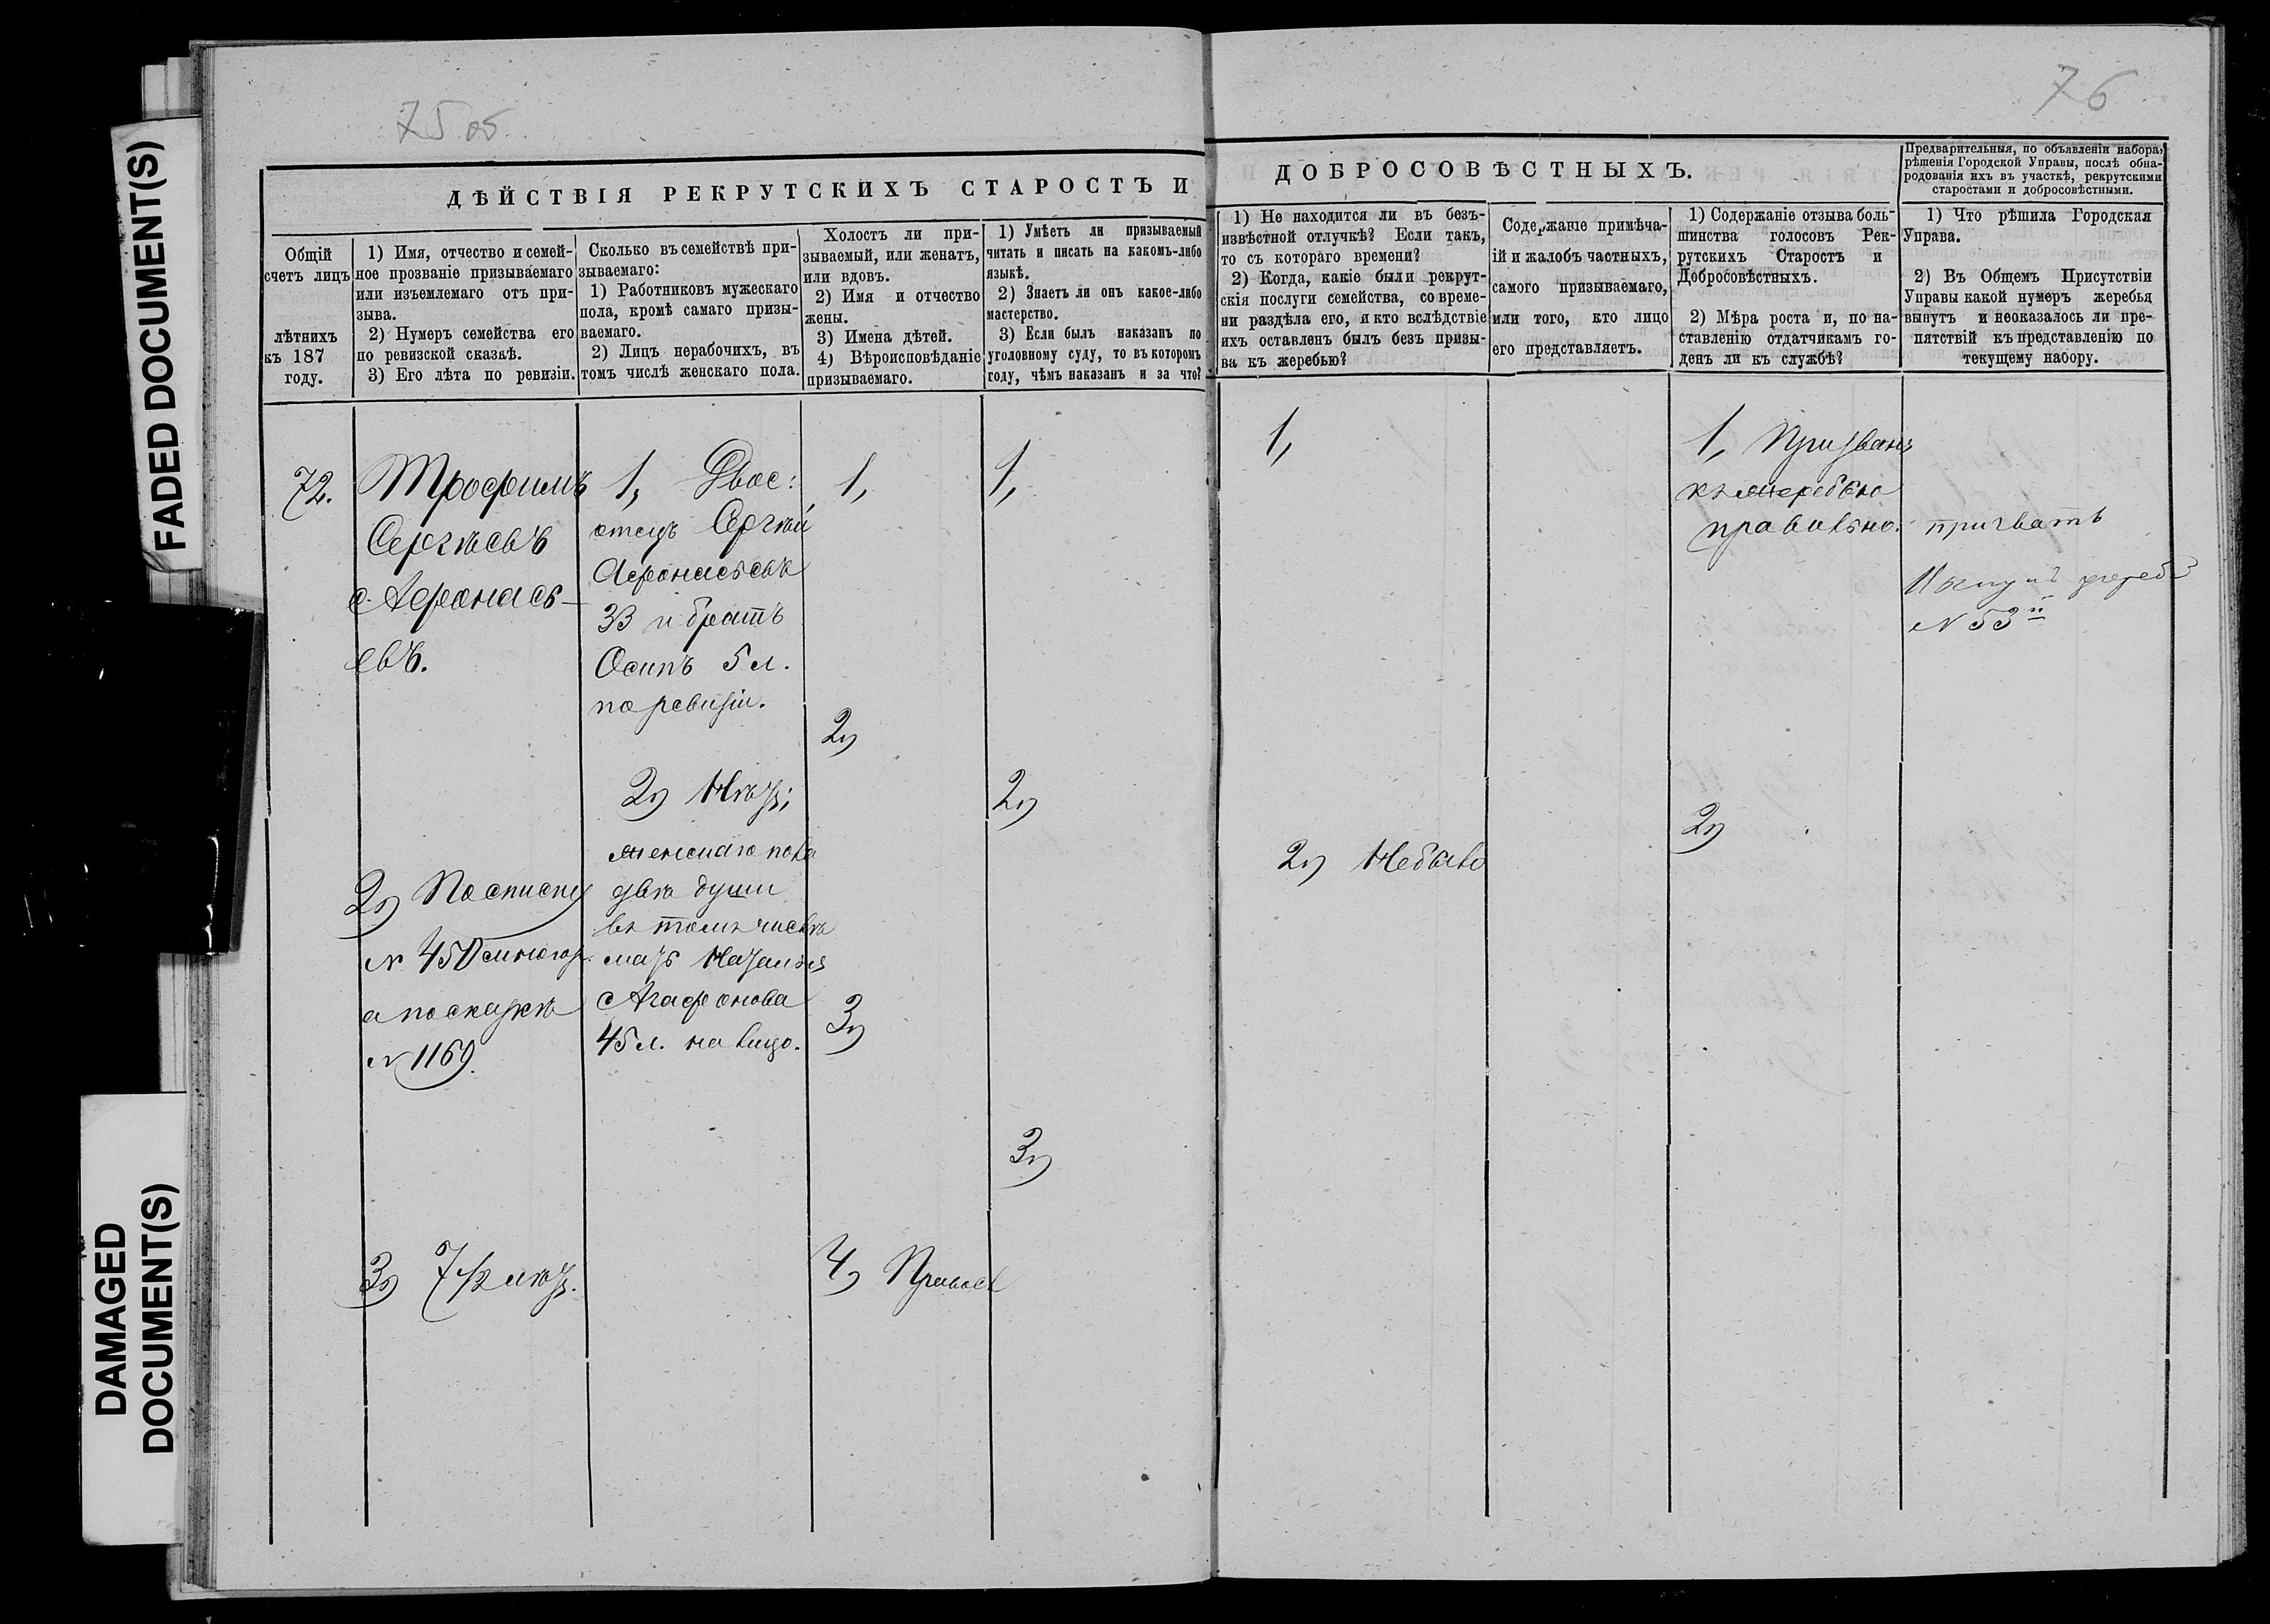 FADED DOCUMENT(S)
DAMAGED
DOCUMENT(S)
75 об.
ДѢЙСТВІЯ РЕКРУТСКИХЪ СТАРОСТЪ И
Общій
счетъ лицъ
лѣтнихъ
къ 187
году.
1) Имя, отчество и семей-
ное прозваніе призываемаго
или изъемлемаго отъ при-
зыва.
2) Нумеръ семейства его
по ревизской сказкѣ.
3) Его лѣта по ревизіи.
Сколько въ семействѣ при-
зываемаго:
1) Работниковъ мужескаго
пола, кромѣ самаго призы-
ваемаго.
2) Лицъ нерабочихъ, въ
томъ числѣ женскаго пола.
Холостъ ли при-
зываемый, или женатъ,
или вдовъ.
2) Имя и отчество
жены.
3) Имена дѣтей.
4) Вѣроисповѣданіе
призываемаго.
1) Умѣетъ ли призываемый
читать и писать на какомъ-либо
языкѣ.
2) Знаетъ ли онъ какое-либо
мастерство.
3) Если былъ наказанъ по
уголовному суду, то въ которомъ
году, чѣмъ наказанъ и за что?
72.
Трофимъ
Сергѣевъ
Афонась-
евъ.
2) По списку
№ 450
а по сказкѣ
№ 1169.
3) 7 1/2 лѣтъ.
1, Двое:
отецъ Сергѣй
Афонасьевъ
33 и братъ
Осипъ 5 л.
по ревизіи.
2) Нѣтъ;
женскаго пола
двѣ души
въ томъ числѣ
мать
Агафонова
45 л. на лицо.
1,
2)
3)
4) Правосл
1,
2)
3)
76
ДОБРОСОВѢСТНЫХЪ.
1) Не находится ли въ безъ-
извѣстной отлучкѣ? Если такъ,
то съ котораго времени?
2) Когда, какіе были рекрут-
скія послуги семейства, со време-
ни раздѣла его, и кто вслѣдствіе
ихъ оставленъ былъ безъ призы-
ва къ жеребью?
Содержаніе примѣча-
ій и жалобъ частныхъ,
самого призываемаго,
или того, кто лицо
его представляетъ.
1) Содержаніе отзыва боль-
шинства голосовъ Рек-
рутскихъ Старостъ и
Добросовѣстныхъ.
2) Мѣра роста и, по на-
ставленію отдатчикамъ го-
денъ ли къ службѣ?
Предварительныя, по объявленіи набора,
рѣшенія Городской Управы, послѣ обна-
родованія ихъ въ участкѣ, рекрутскими
старостами и добросовѣстными.
1) Что рѣшила Городская
Управа.
2) Въ Общемъ Присутствіи
Управы какой нумеръ жеребья
вынутъ и неоказалось ли пре-
пятствій къ представленію по
текущему набору.
1,
2) Небыло
1, Призванъ
къ жеребью
правильно.
2)
призвать
Вынутъ жереб
№ 53й